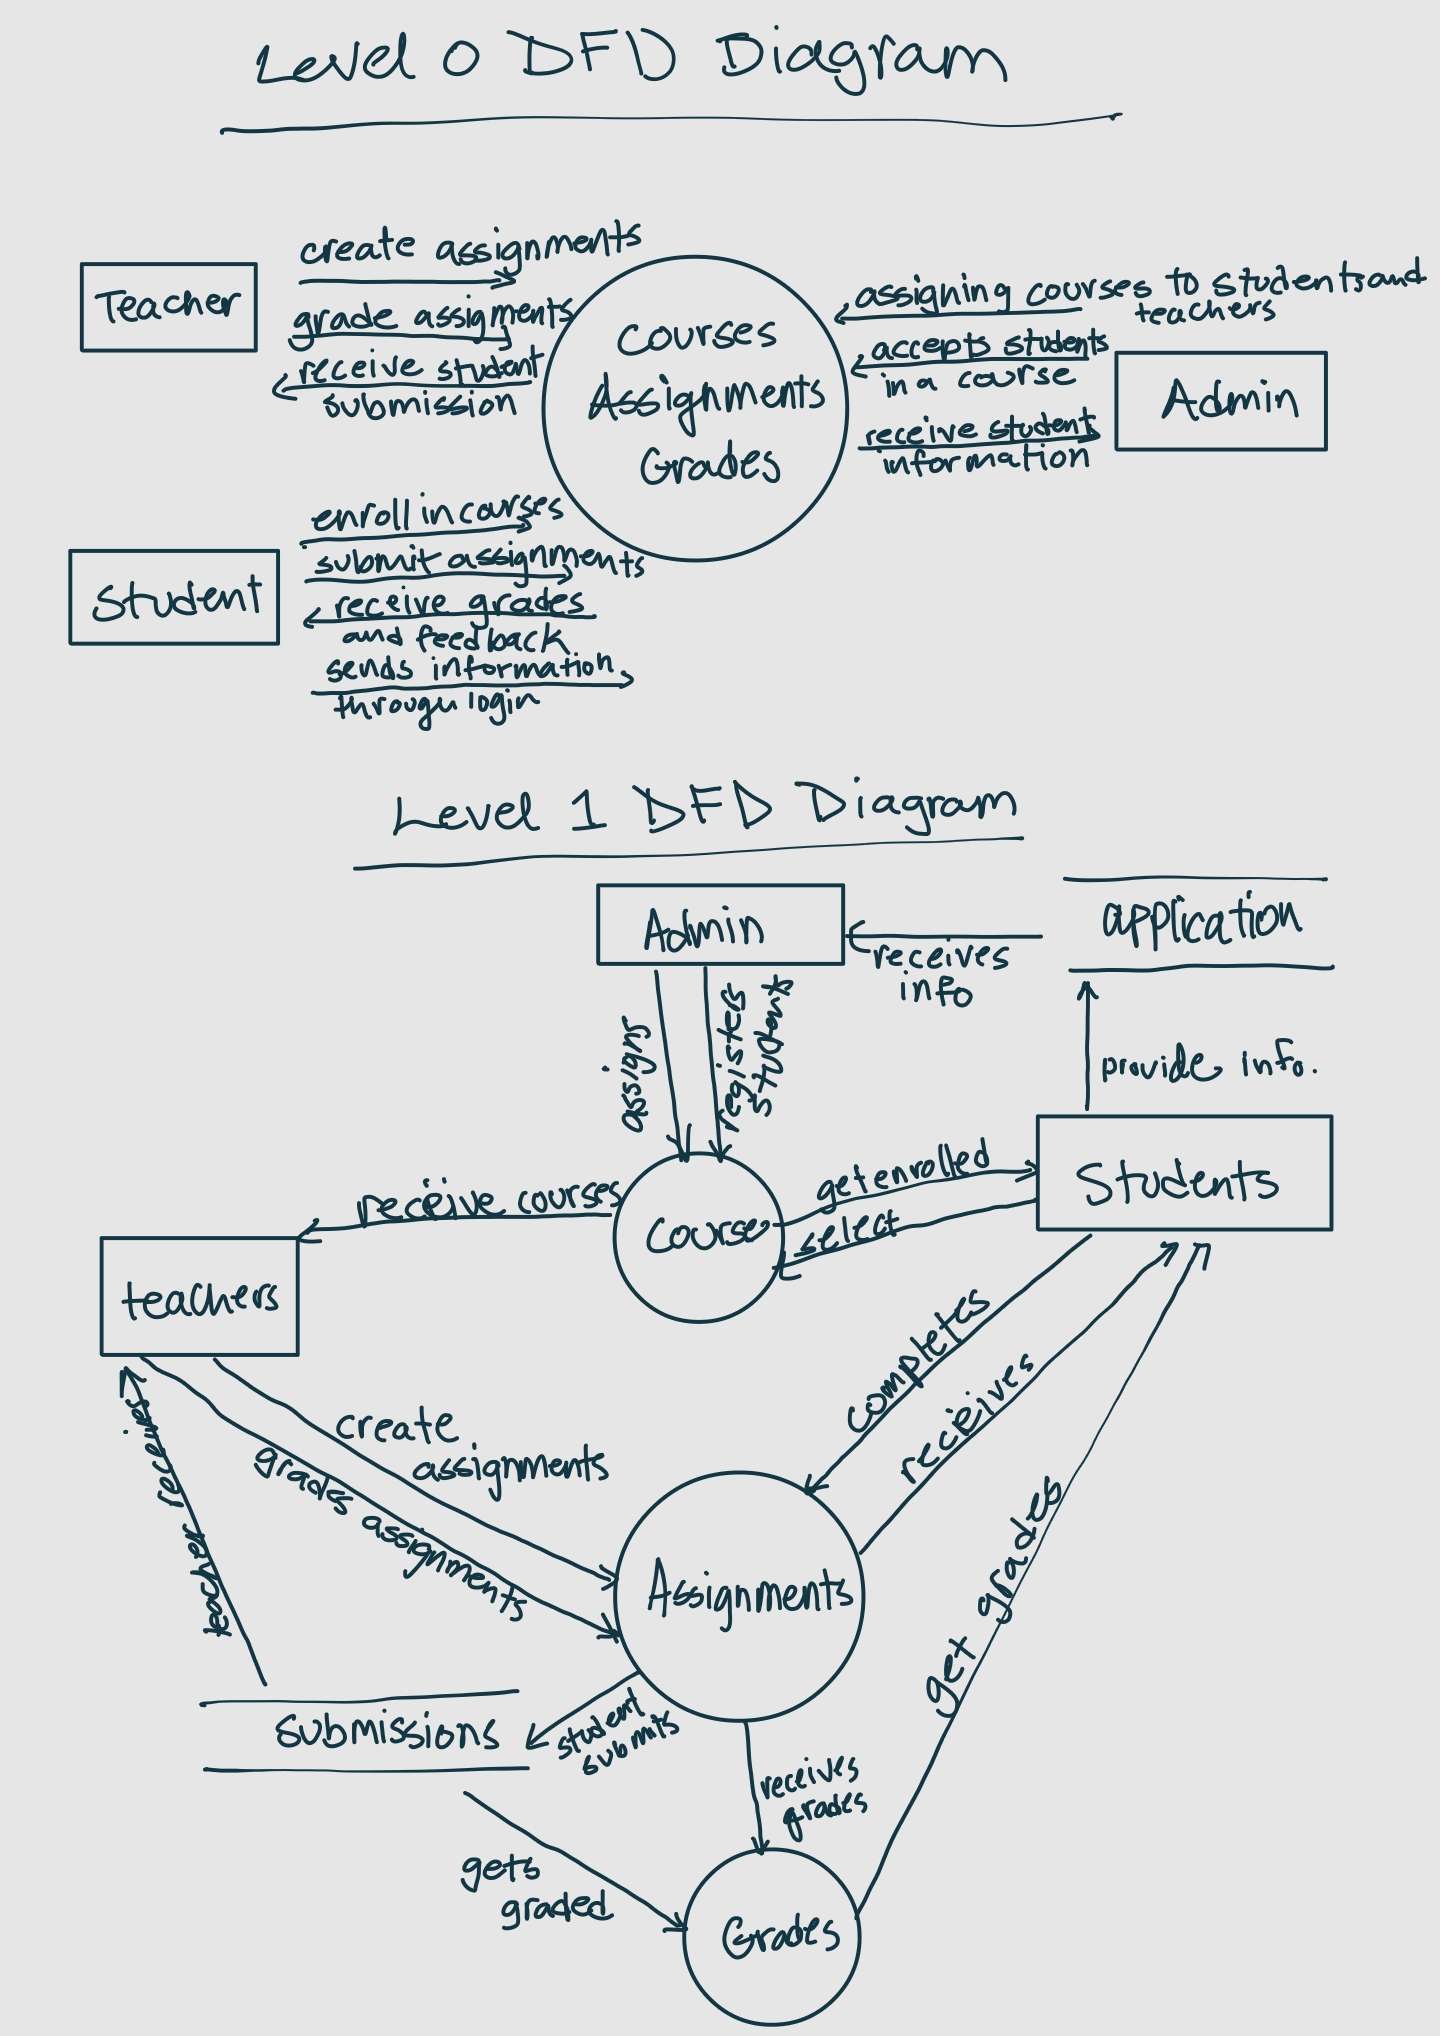 Level 0 DFD Diagram
Teacher
create assignments
grade assignments
receive student
submission
Courses
Assignments
Grades
assigning courses to students and
teachers
accepts students
in a course
receive student
information
Admin
Student
enroll in courses
submit assignments
receive grades
and feedback
sends information
through login
Level 1 DFD Diagram
Admin
application
receives
info
assigns
registers
student
provide info.
Students
get enrolled
select
receive courses
Course
teachers
completes
receives
create
assignments
grades assignments
teacher receives
Assignments
get grades
submissions
student
submits
receives
grades
gets
graded
Grades